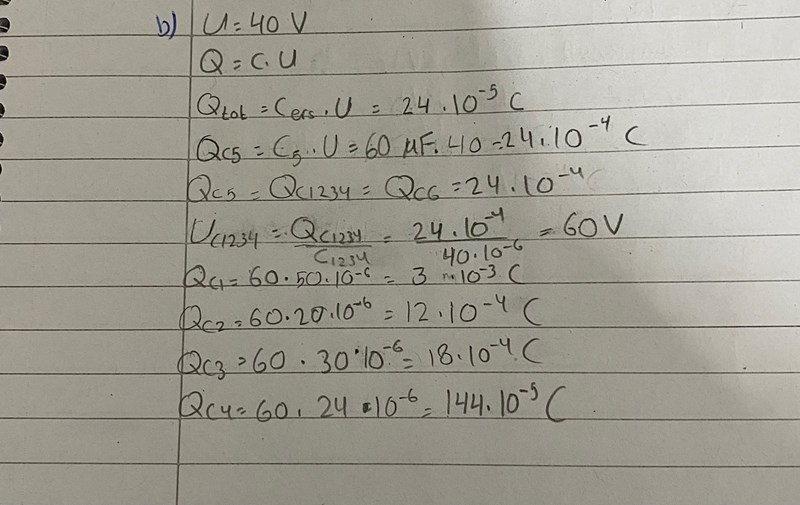 b) U = 40 V
Q = C. U
Qtot = Cers . U = 24 . 10⁻⁵ C
QC5 = C5 . U = 60 µF. 40 = 24. 10⁻⁴ C
QC5 = QC1234 = QC6 = 24 . 10⁻⁴ C
UC1234 = QC1234 / C1234 = 24 . 10⁻⁴ / 40 . 10⁻⁶ = 60 V
QC1 = 60 . 50 . 10⁻⁶ = 3 . 10⁻³ C
QC2 = 60 . 20 . 10⁻⁶ = 12 . 10⁻⁴ C
QC3 = 60 . 30 . 10⁻⁶ = 18 . 10⁻⁴ C
QC4 = 60 . 24 . 10⁻⁶ = 144 . 10⁻⁵ C